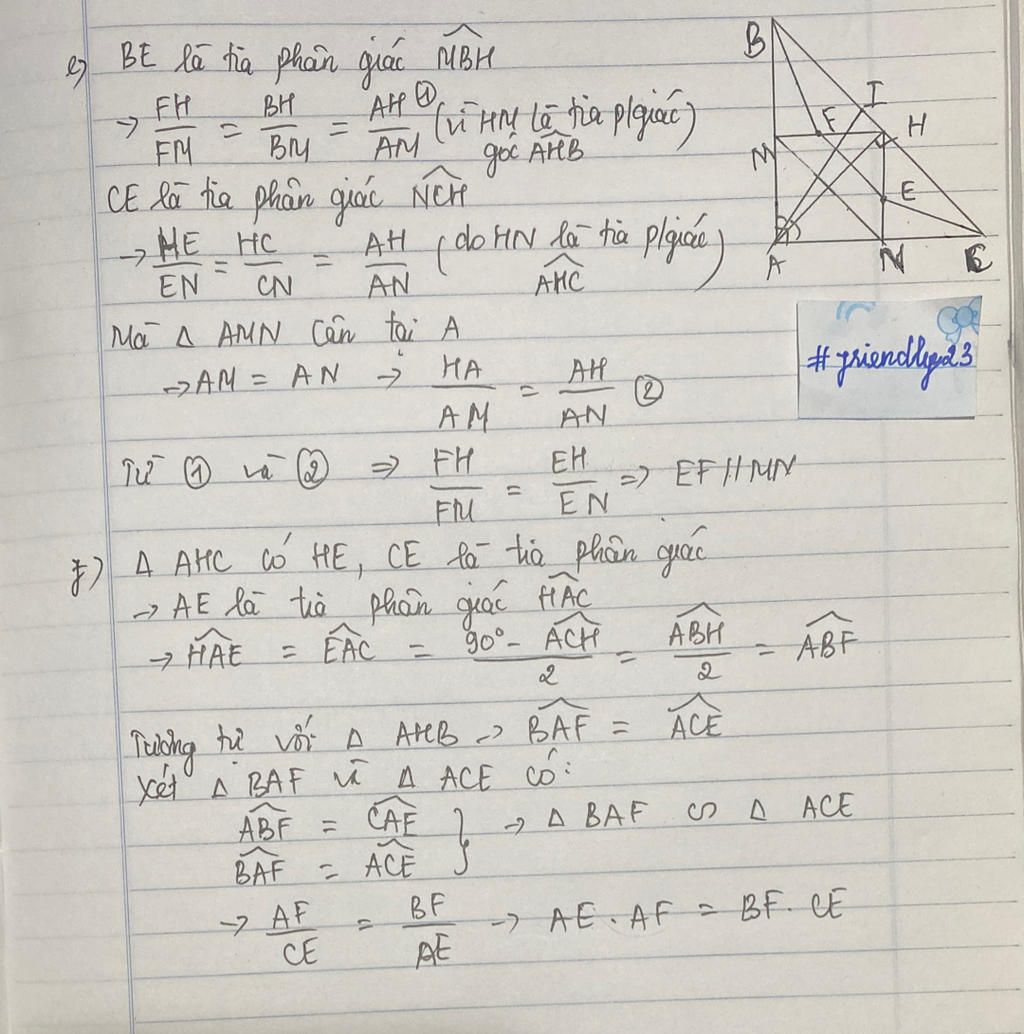 e) BE là tia phân giác MBH
→ FH/FM = BH/BM = AH/AM ① (vì HM là tia p/giác góc AHB)
CE là tia phân giác NCH
→ HE/EN = HC/CN = AH/AN (do HN là tia p/giác AHC)
Mà Δ AMN cân tại A
→ AM = AN → HA/AM = AH/AN ②
Từ ① và ② ⇒ FH/FM = EH/EN ⇒ EF // MN
f) Δ AHC có HE, CE là tia phân giác
→ AE là tia phân giác HAC
→ HAE = EAC = 90° - ACH/2 = ABH/2 = ABF
Tương tự với Δ AHB → BAF = ACE
Xét Δ BAF và Δ ACE có:
ABF = CAE
BAF = ACE } → Δ BAF ∽ Δ ACE
→ AF/CE = BF/AE → AE . AF = BF . CE
B
I
F
H
M
E
A
N
C